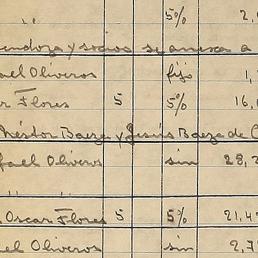 " 5% 2,
endoza y socios se anexa a
ael Oliveros fijo 1,
ar Flores 5 5% 16,
Néstor Baeza y Jesús Baeza de C
fael Oliveros sin 28,2
" "
. Oscar Flores 5 5% 21,4
el Oliveros sin 2,7